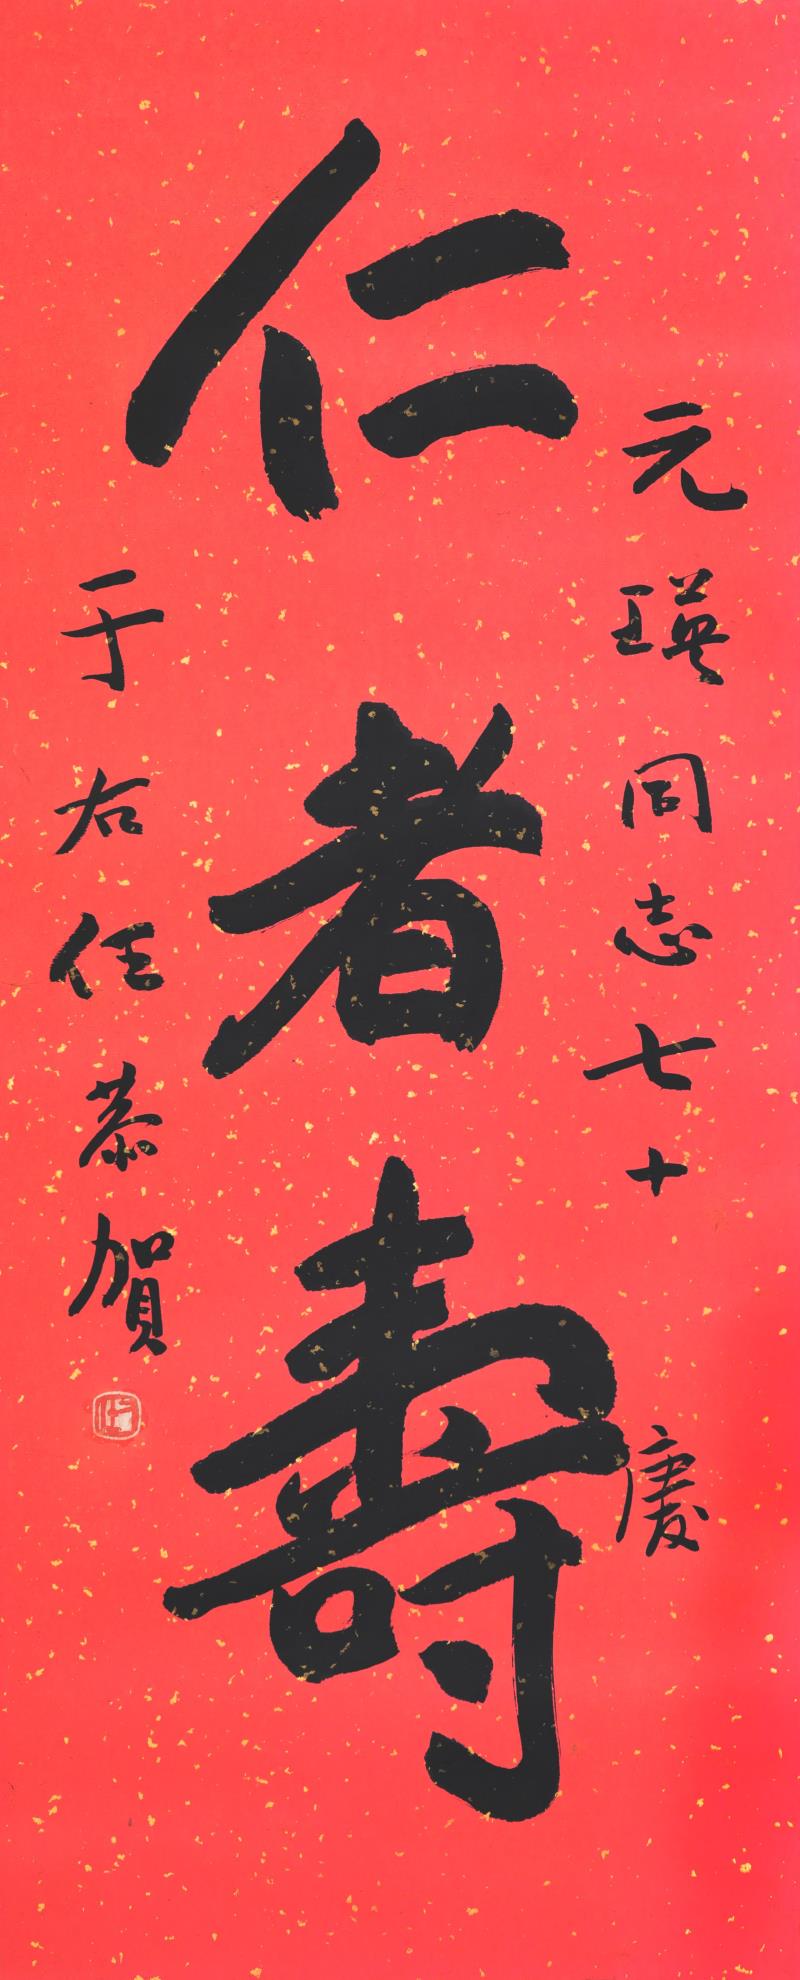 元瑛同志七十慶
仁者壽
于右任恭賀